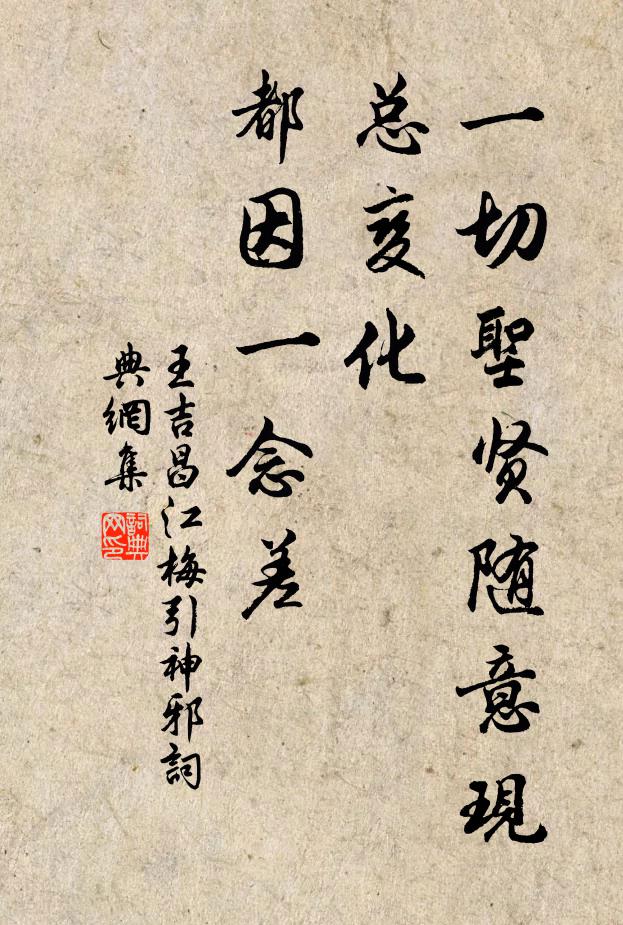 一切聖贤随意現
总变化
都因一念差
王吉昌江梅引神邪詞
典網集
詞典网印